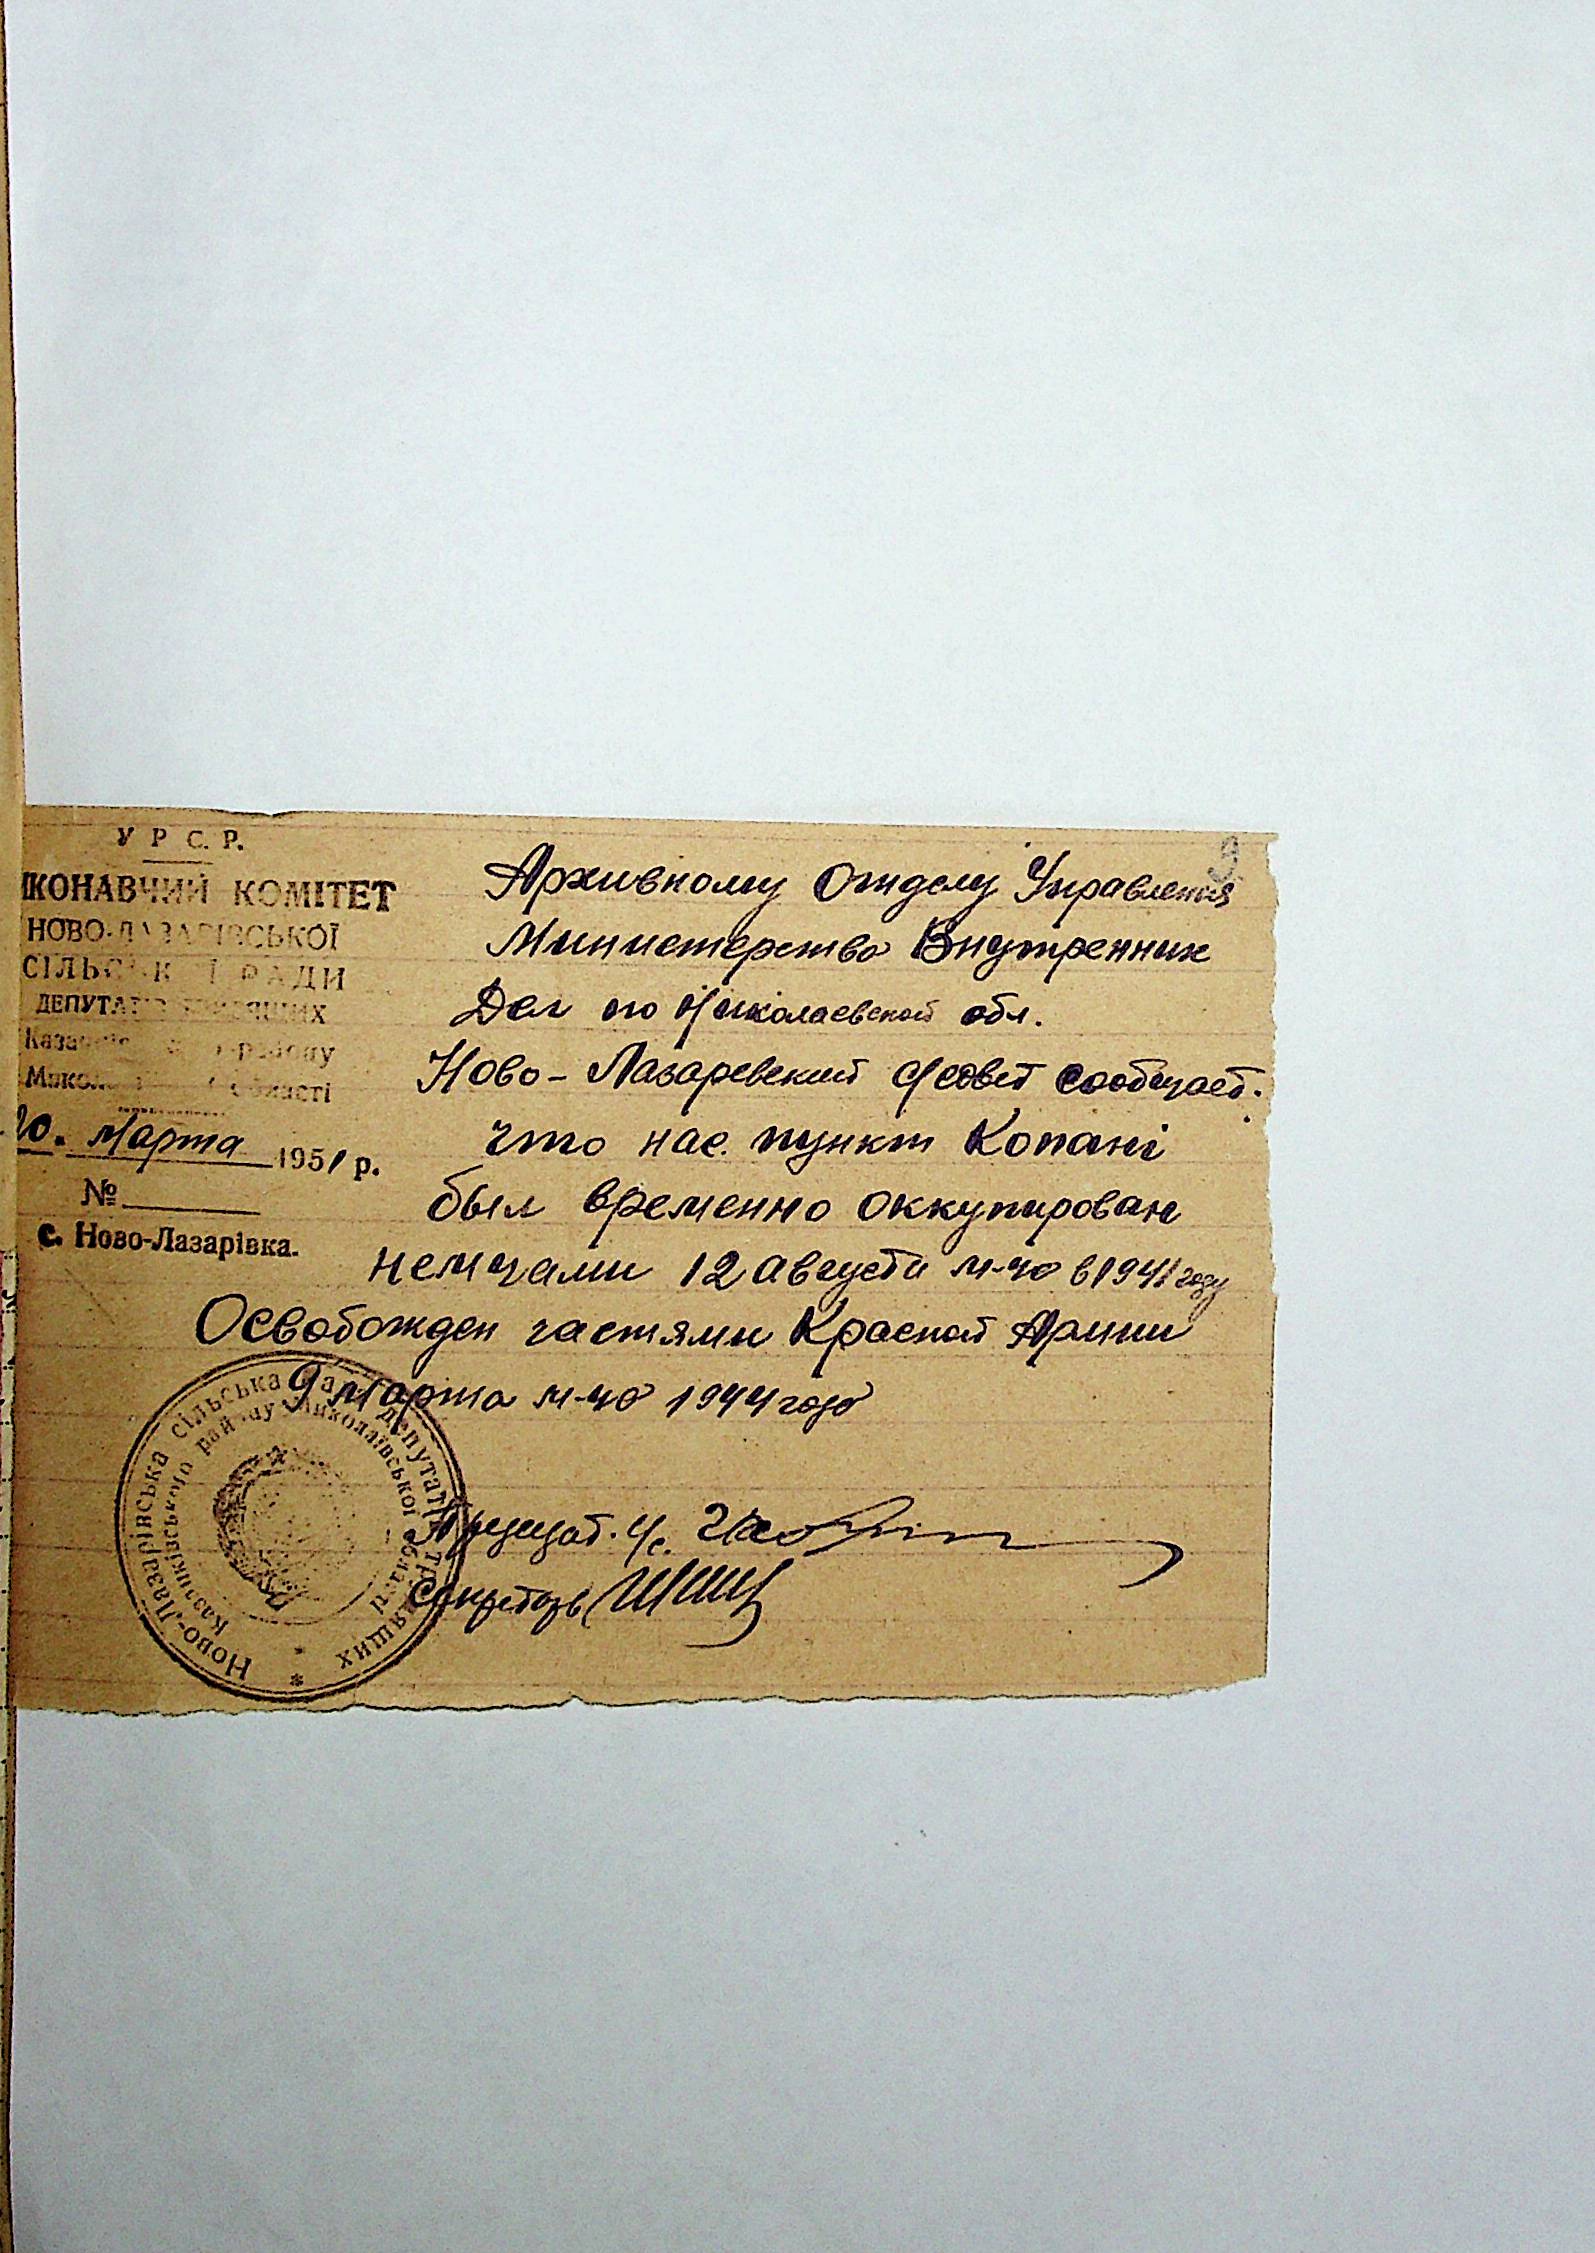 9
У Р С. Р.
КОНАВЧИЙ КОМІТЕТ
НОВО-ЛАЗАРІВСЬКОЇ
СІЛЬСЬКОЇ РАДИ
ДЕПУТАТІВ ТРУДЯЩИХ
Миколаївської області
20. Марта 1951 р.
№
с. Ново-Лазарівка.
Архивному Отделу Управления
Министерство Внутренних
Дел по Николаевской обл.
Ново-Лазаревский с/совет сообщает.
что нас. пункт Копані
был временно оккупирован
немцами 12 августа м-ца в 1941 году
Освобожден частями Красной Армии
9 марта м-ца 1944 года
Председат. с/с.
Секретарь
Ново-Лазарівська сільська Рада депутатів трудящих
Казанківського району Миколаївської області